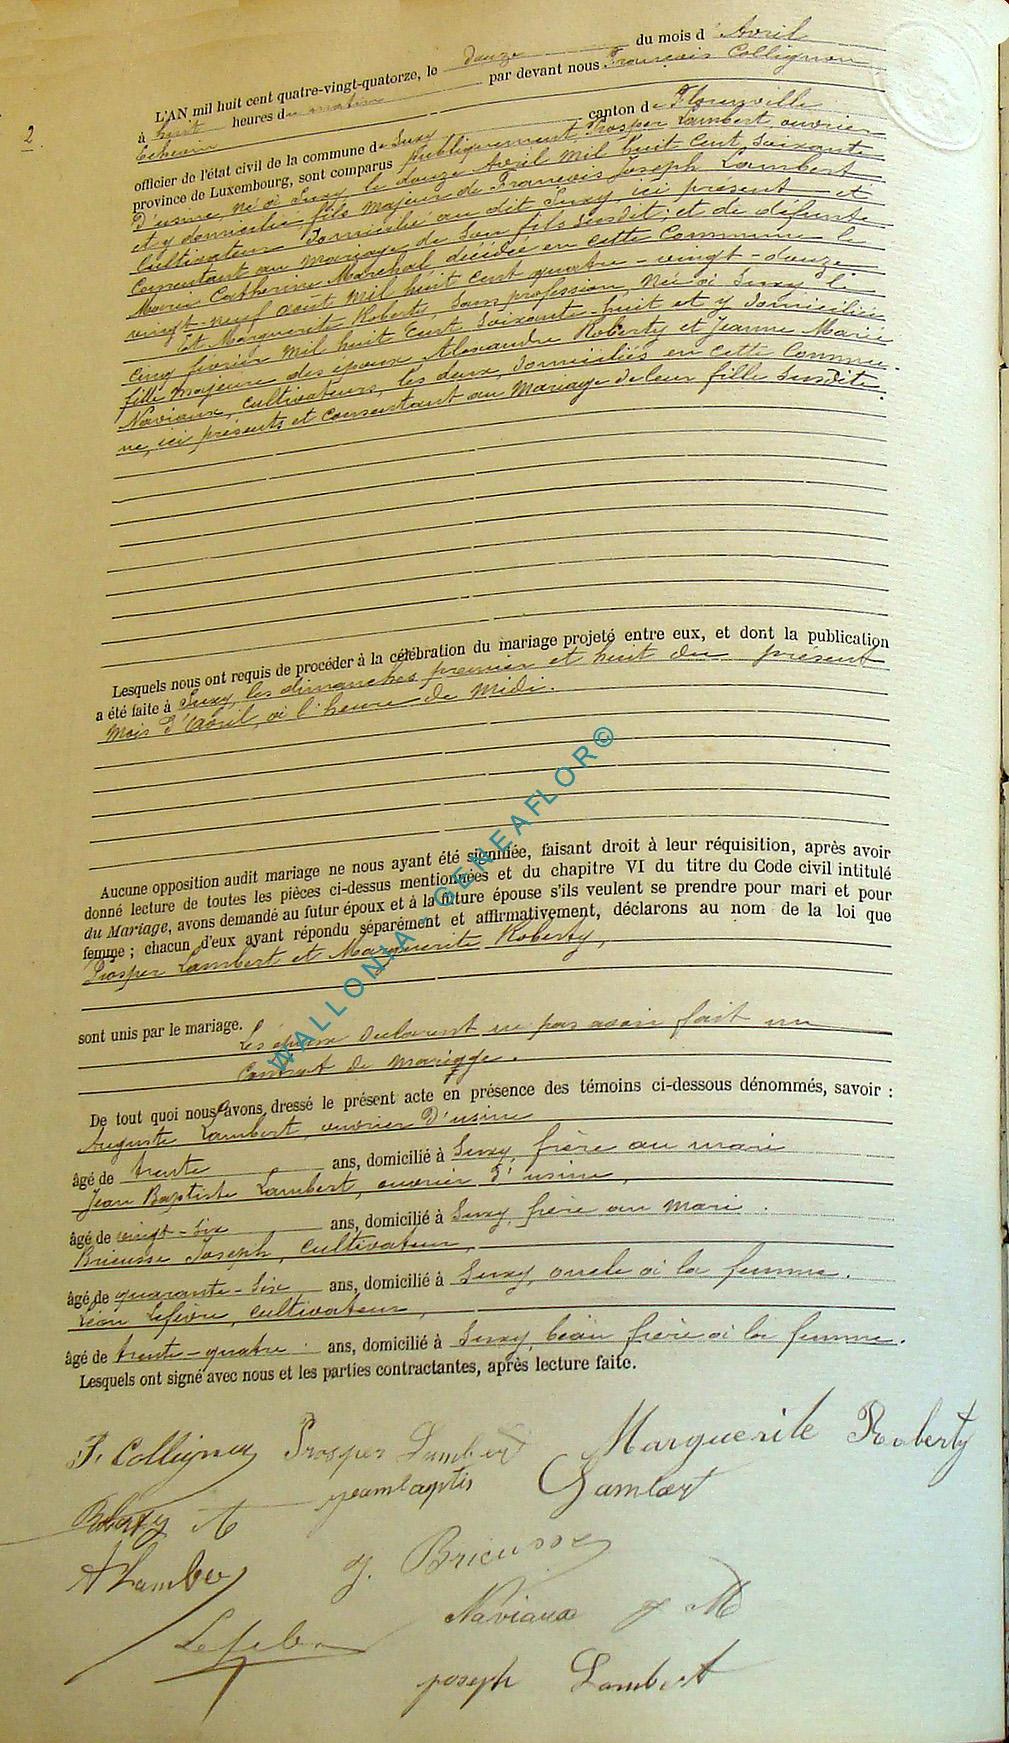 2
L'AN mil huit cent quatre-vingt-quatorze, le douze du mois d'Avril
à huit heures du matin par devant nous François Collignon
Echevin
officier de l'état civil de la commune de Suxy canton de Florenville
province de Luxembourg, sont comparus publiquement Prosper Lambert, ouvrier
d'usine, né à Suxy le douze Avril mil huit cent soixante
et y domicilié, fils majeur de François Joseph Lambert
Cultivateur domicilié au dit Suxy, ici présent et
Consentant au mariage de son fils susdit; et de défunte
Marie Catherine Maréchal décédée en cette Commune le
vingt-neuf Août mil huit cent quatre-vingt-douze
Et Marguerite Roberty, sans profession, Née à Suxy le
Cinq février mil huit cent soixante-huit et y domiciliée
fille majeure des époux Alexandre Roberty et Jeanne Marie
Naviaux, cultivateurs, les deux domiciliés en cette Commu-
ne, ici présents et consentant au Mariage de leur fille susdite.
Lesquels nous ont requis de procéder à la célébration du mariage projeté entre eux, et dont la publication
a été faite à Suxy, les dimanches premier et huit du présent
mois d'Avril, à l'heure de Midi.
Aucune opposition audit mariage ne nous ayant été signifiée, faisant droit à leur réquisition, après avoir
donné lecture de toutes les pièces ci-dessus mentionnées et du chapitre VI du titre du Code civil intitulé
du Mariage, avons demandé au futur époux et à la future épouse s'ils veulent se prendre pour mari et pour
femme ; chacun d'eux ayant répondu séparément et affirmativement, déclarons au nom de la loi que
Prosper Lambert et Marguerite Roberty,
sont unis par le mariage.
Les époux déclarent ne pas avoir fait un
Contrat de mariage.
De tout quoi nous avons dressé le présent acte en présence des témoins ci-dessous dénommés, savoir :
Auguste Lambert, ouvrier d'usine
âgé de trente ans, domicilié à Suxy, frère au mari
Jean Baptiste Lambert, ouvrier d'usine,
âgé de vingt-six ans, domicilié à Suxy, frère au mari.
Bricusse Joseph, cultivateur,
âgé de quarante-six ans, domicilié à Suxy, oncle à la femme.
Léon Lefèvre, cultivateur,
âgé de trente-quatre ans, domicilié à Suxy, beau frère à la femme.
Lesquels ont signé avec nous et les parties contractantes, après lecture faite.
F. Collignon Prosper Lambert Marguerite Roberty
jeanbaptis Lambert
Roberty A
A Lambert J. Bricusse
Naviaux J M
Lefebvre
joseph Lambert
WALLONIA - GENEAFLOR©